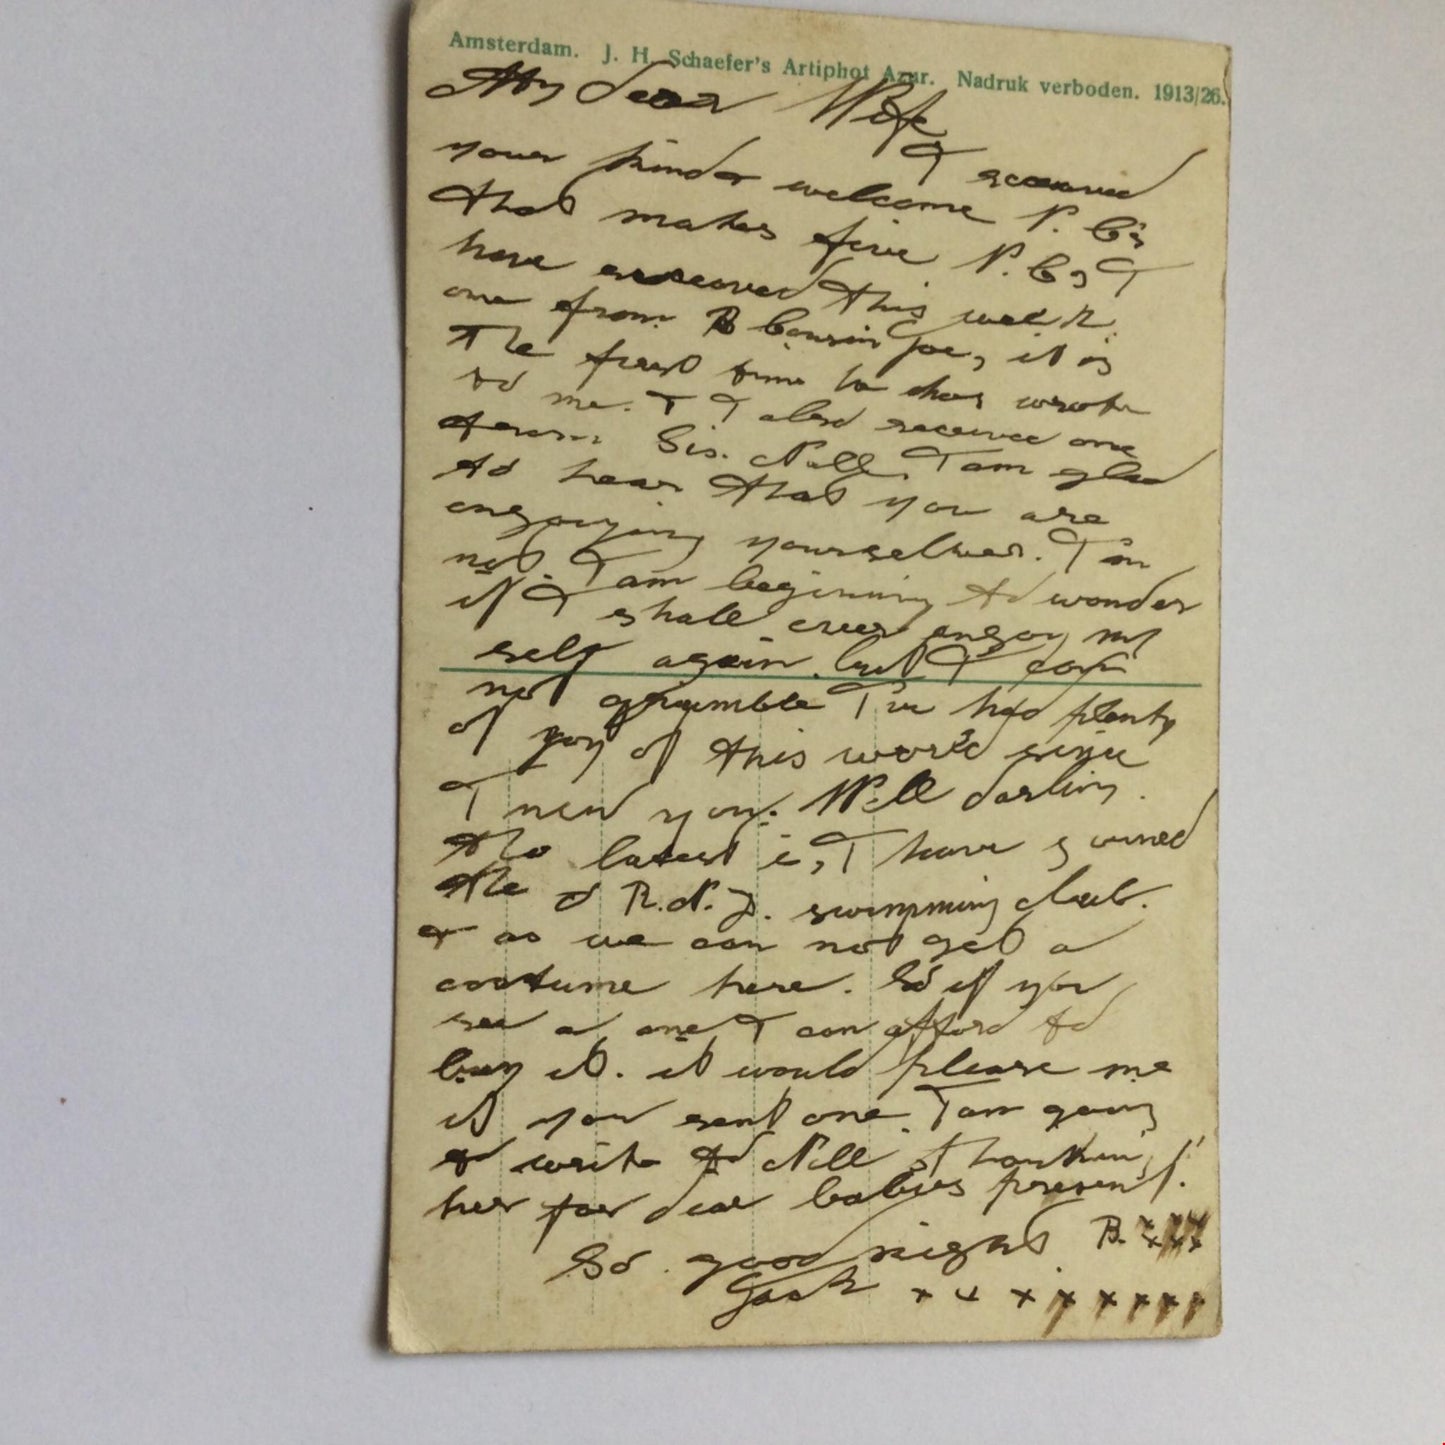 Amsterdam. J. H. Schaefer's Artiphot Azur. Nadruk verboden. 1913/26.
My dear Wife
I received
your kind welcome P. Cs
that makes five P. Cs I
have received this week.
one from B Cousin Joe, it is
The first time he has wrote
to me. I also receive one
from Sis. Nell. I am glad
to hear that you are
engoying yourselves. I'm
not. I am beginning to wonder
if I shall ever engoy my
self again. but I can
not grumble I've had plenty
of goy of this world since
I new you. Well darling.
the latest is, I have goined
the R.N.D. swimming club.
& as we can not get a
costume here. So if you
see a one I can afford to
buy it. it would please me
if you sent one. I am going
to write to Nell thankin
her for dear babies present.
So good night B. xxx
xxx
Jack x x x x x x x x